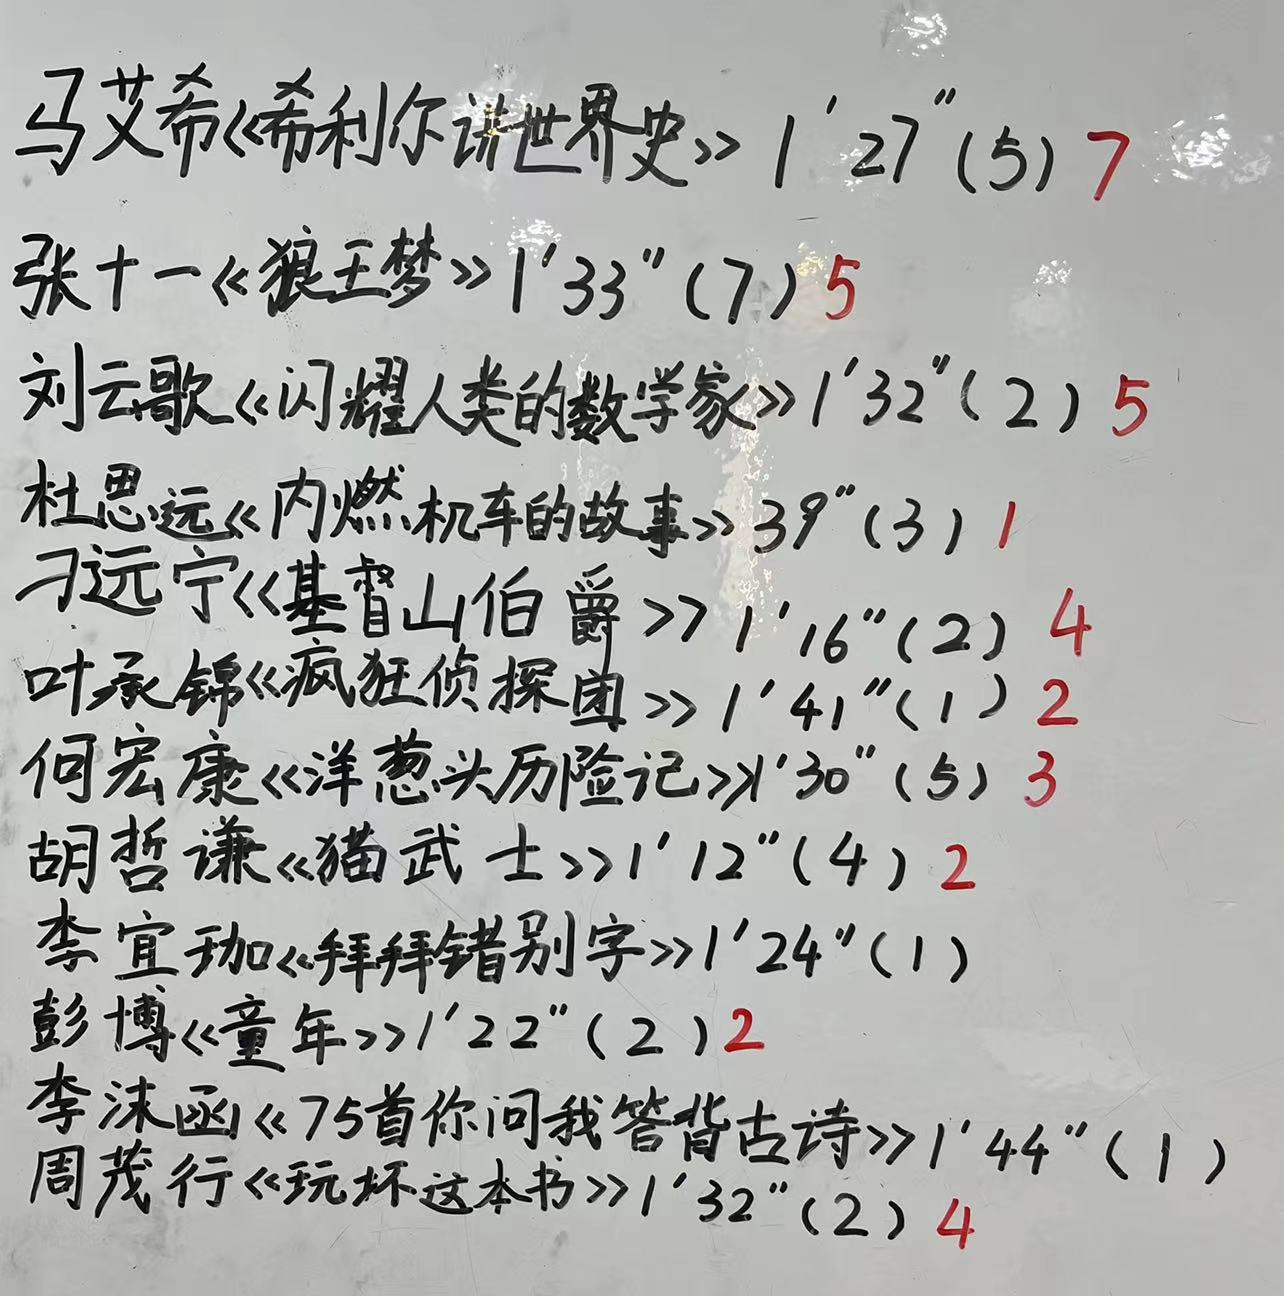 马艾希《希利尔讲世界史》1′27″(5) 7
张十一《狼王梦》1′33″(7) 5
刘云歌《闪耀人类的数学家》1′32″(2) 5
杜思远《内燃机车的故事》39″(3) 1
刁远宁《基督山伯爵》1′16″(2) 4
叶承锦《疯狂侦探团》1′41″(1) 2
何宏康《洋葱头历险记》1′30″(5) 3
胡哲谦《猫武士》1′12″(4) 2
李宜珈《拜拜错别字》1′24″(1)
彭博《童年》1′22″(2) 2
李沫函《75首你问我答背古诗》1′44″(1)
周茂行《玩坏这本书》1′32″(2) 4